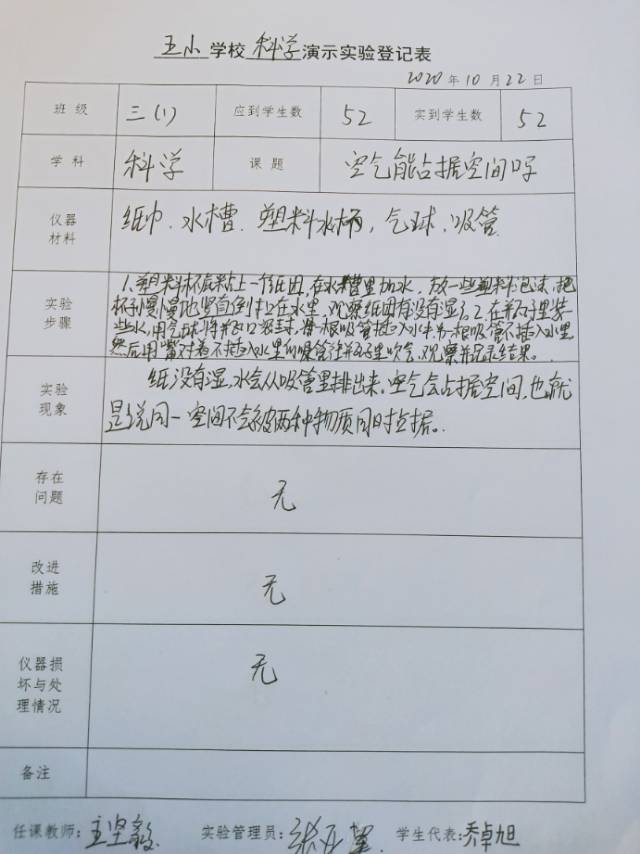 五小学校科学演示实验登记表
2020年10月22日
班级 三(1) 应到学生数 52 实到学生数 52
学科 科学 课题 空气能占据空间吗
仪器材料 纸巾、水槽、塑料水杯，气球、吸管
实验步骤 1、塑料杯底粘上一个纸团，在水槽里加水，放一些塑料泡沫，把
杯子慢慢地竖直倒扣在水里，观察纸团有没有湿；2、在瓶子里装
些水，用气球将瓶口密封，将一根吸管插入水中，另一根吸管不插入水里
然后用嘴对着不插入水里的吸管往瓶子里吹气，观察并记录结果。
实验现象 纸没有湿，水会从吸管里排出来，空气会占据空间，也就
是说同一空间不会被两种物质同时占据。
存在问题 无
改进措施 无
仪器损坏与处理情况 无
备注
任课教师：王坚毅 实验管理员：张 学生代表：乔卓旭